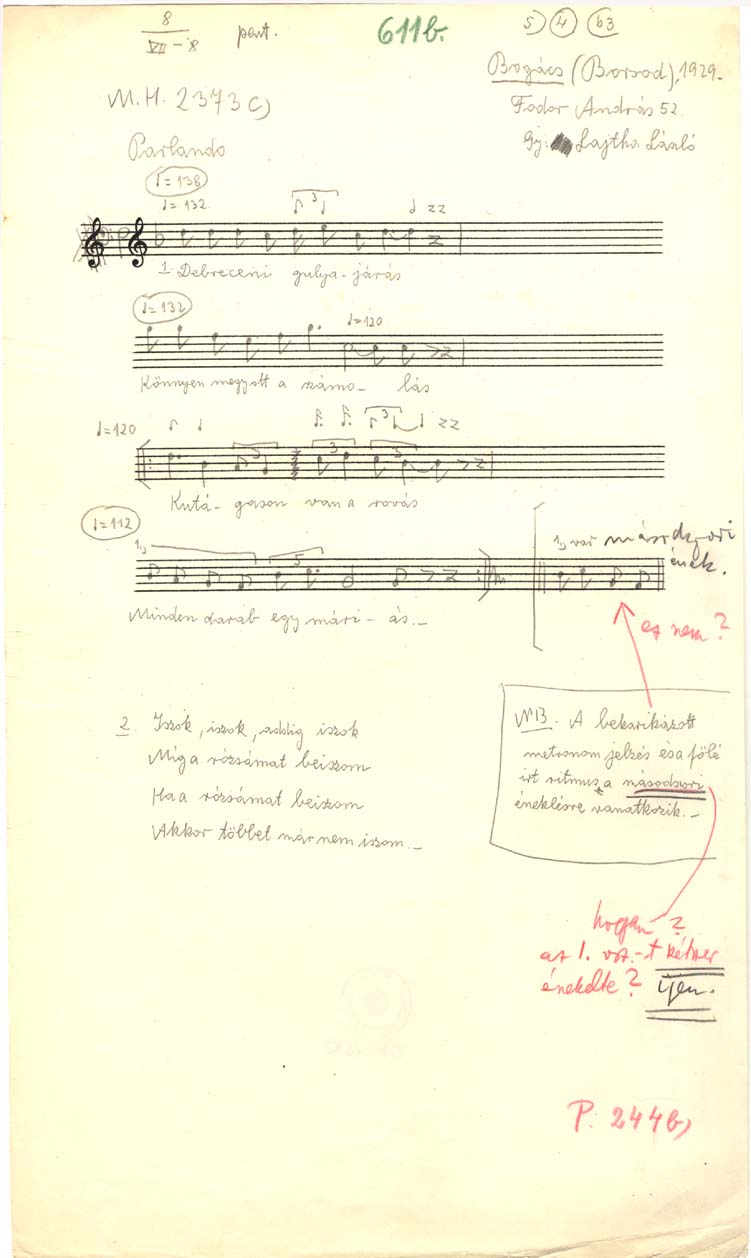 8
VII - 8
pent.
611b.
5) 4 b3
Bogács (Borsod), 1929.
M.H. 2373 c)
Fodor András 52.
Gy: Lajtha László
Parlando
♩= 138
♩= 132.
3
1. Debreceni gulya-járás
♩=132
♩=120
Könnyen megyott a számo- lás
♩=120
3
3 3 3
Kutá- gason van a rovás
♩=112
1,) 5
1,) var másodszori
ének.
Minden darab egy mári - ás._
ez nem?
2. Iszok, iszok, addig iszok
Míg a rózsámat beiszom
Ha a rózsámat beiszom
Akkor többet már nem iszom._
NB. A bekarikázott
metronom jelzés és a fölé
írt ritmus a másodszori
éneklésre vonatkozik._
hogyan?
az 1. vsz.-t kétszer
énekelte? igen.
P: 244b)